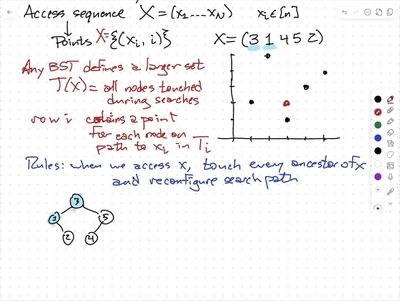 Access sequence X = (x₁...x_N) xᵢ∈[n]
Points X={(xᵢ, i)}
X = (3 1 4 5 2)
Any BST defines a larger set
J(X) = all nodes touched
during searches
row i contains a point
for each node on
path to xᵢ in Tᵢ
Rules: when we access x, touch every ancestor of x
and reconfigure search path
3
3 5
2 4